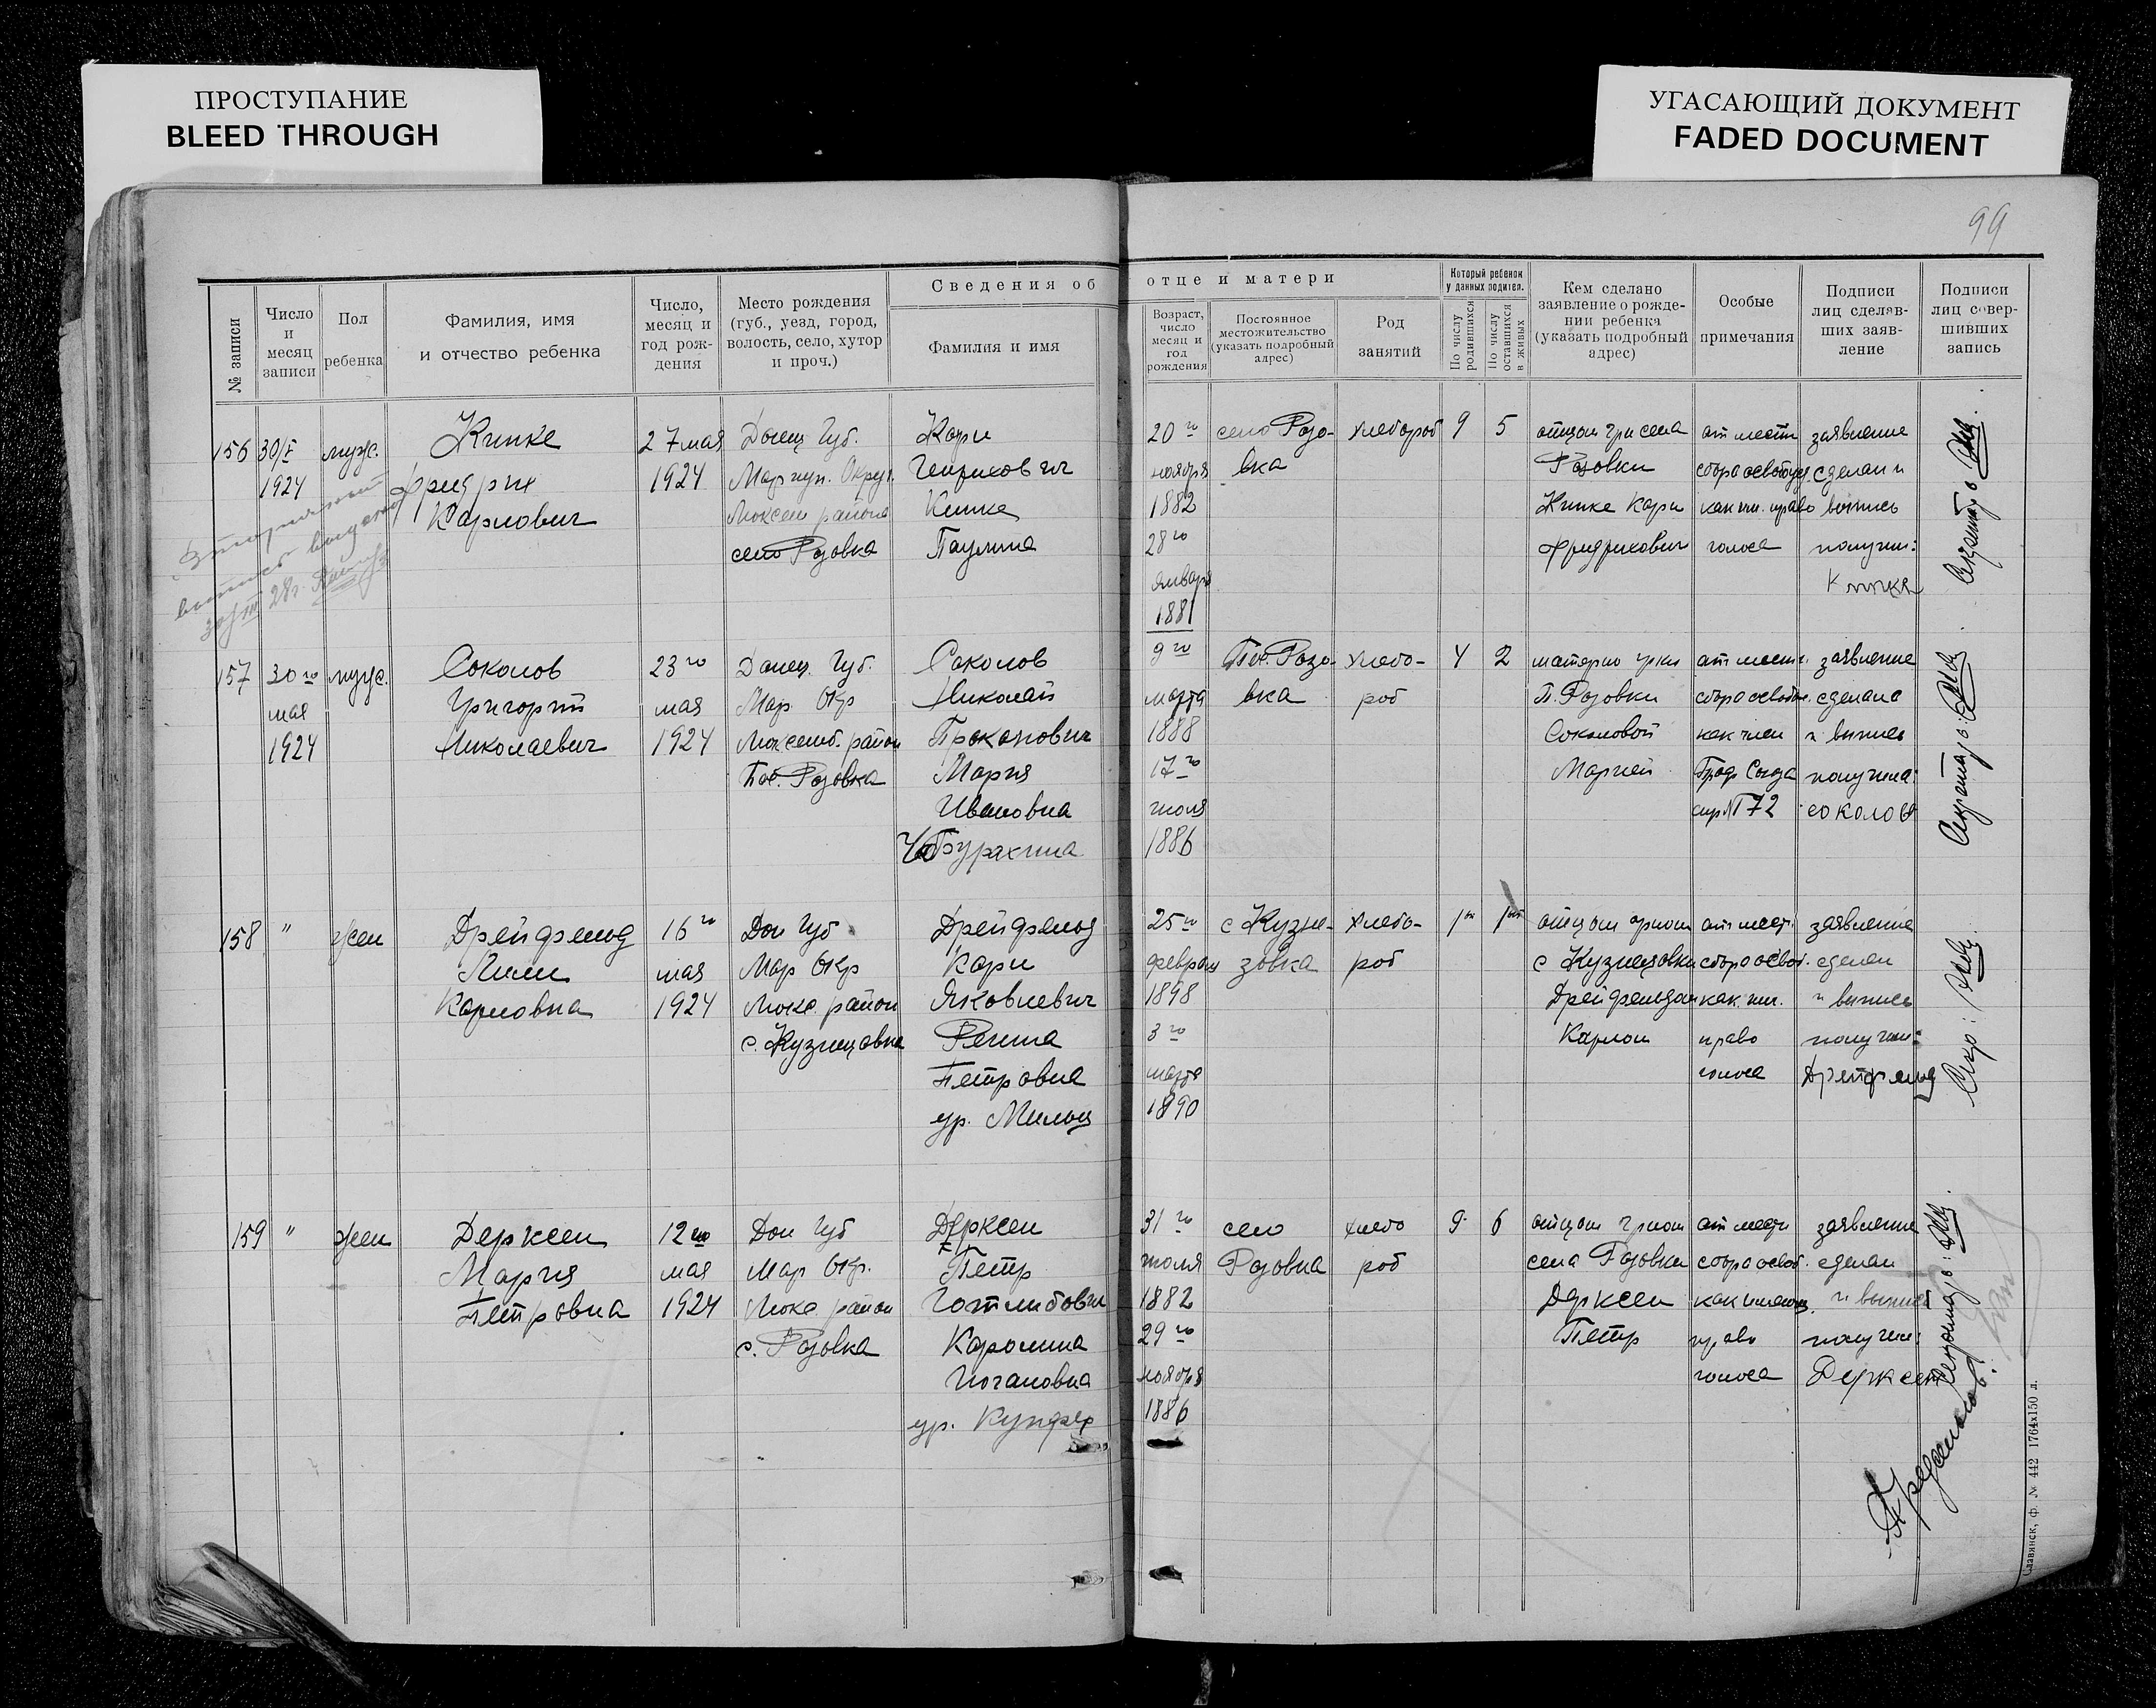 ПРОСТУПАНИЕ
BLEED THROUGH
УГАСАЮЩИЙ ДОКУМЕНТ
FADED DOCUMENT
99
№ записи
Число
и
месяц
записи
Пол
ребенка
Фамилия, имя
и отчество ребенка
Число,
месяц и
год рож-
дения
Место рождения
(губ., уезд, город,
волость, село, хутор
и проч.)
Сведения об
Фамилия и имя
отце и матери
Возраст,
число
месяц и
год
рождения
Постоянное
местожительство
(указать подробный
адрес)
Род
занятий
Который ребенок
у данных родител.
По числу
родившихся
По числу
оставшихся
в живых
Кем сделано
заявление о рожде-
нии ребенка
(указать подробный
адрес)
Особые
примечания
Подписи
лиц сделав-
ших заяв-
ление
Подписи
лиц совер-
шивших
запись
156
30/V
1924
муж.
Кнпке
Фридрих
Карлович
27 мая
1924
Донец Губ.
Мариуп. Округ.
Люксем района
село Розовка
Карл
Генрихович
Паулина
20го
ноября
1882
28го
января
1881
село Розо-
вка
хлебороб
9
5
отцом гр-н села
Розовки
Карл
Фридрихович
от местн
сбора
голоса
заявление
сделал и
выпись
получил:
Секретарь
28г.
157
30го
мая
1924
муж.
Соколов
Григорий
Николаевич
23го
мая
1924
Донец. Губ.
Мар Окр
Люксемб. район
Пос. Розовка
Соколов
Николай
Прокопович
Мария
Ивановна
9го
марта
1888
17го
июля
1886
Пос. Розо-
вка
хлебо-
роб
4
2
матерью гр-кой
П. Розовки
Соколовой
Марией
от местн.
сбора освобож.
как член
Проф Союза
72
заявление
сделала
и выпись
получила:
соколов
Секретарь:
158
"
жен
Дрейфельд
Лили
Карловна
16го
мая
1924
Дон Губ
Мар Окр
Люкс. район
с. Кузнецовка
Дрейфельд
Карл
Яковлевич
Петровна
ур.
25го
февраля
1898
3го
марта
1890
с Кузне-
цовка
хлебо-
роб
1й
1й
отцом гр-ном
с Кузнецовки
Дрейфельдом
Карлом
от мест.
сбора освоб.
право
голоса
заявление
сделал
и выпись
получил:
Дрейфельд
Скр:
159
"
жен
Дерксен
Мария
Петровна
12го
мая
1924
Дон Губ
Мар Окр.
Люкс район
с. Розовка
Дерксен
Петр
Готлибович
Каролина
Иогановна
ур. Купфер
31го
июля
1882
29го
ноября
1886
село
Розовка
хлебо
роб
9
6
отцом гр-ном
села Розовки
Дерксен
Петр
от местн
сбора освоб.
как имеющ.
право
голоса
заявление
сделал
и выпись
получил:
Дерксен
Секретарь:
Славянск, ф. № 442 1764х150 л.